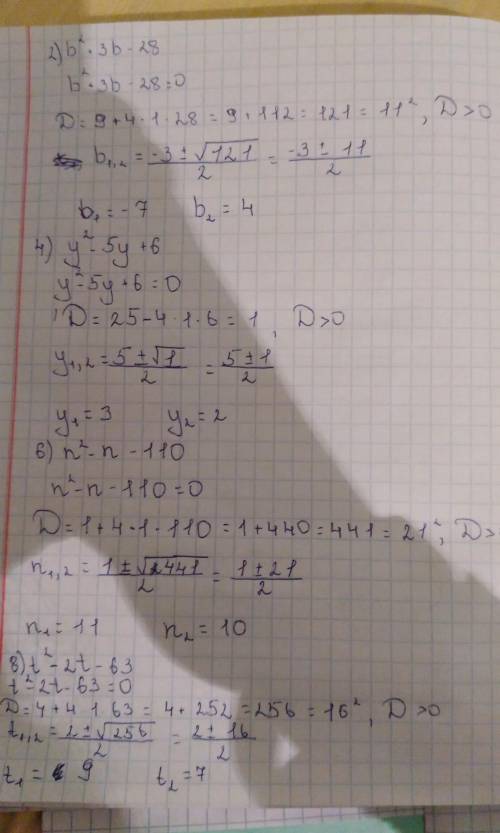 2) b² + 3b - 28
b² + 3b - 28 = 0
D = 9 + 4 · 1 · 28 = 9 + 112 = 121 = 11², D > 0
b₁,₂ = (-3 ± √121)/2 = (-3 ± 11)/2
b₁ = -7 b₂ = 4
4) y² - 5y + 6
y² - 5y + 6 = 0
D = 25 - 4 · 1 · 6 = 1, D > 0
y₁,₂ = (5 ± √1)/2 = (5 ± 1)/2
y₁ = 3 y₂ = 2
6) n² - n - 110
n² - n - 110 = 0
D = 1 + 4 · 1 · 110 = 1 + 440 = 441 = 21², D >
n₁,₂ = (1 ± √2441)/2 = (1 ± 21)/2
n₁ = 11 n₂ = 10
8) t² - 2t - 63
t² - 2t - 63 = 0
D = 4 + 4 · 1 · 63 = 4 + 252 = 256 = 16², D > 0
t₁,₂ = (2 ± √256)/2 = (2 ± 16)/2
t₁ = 9 t₂ = 7